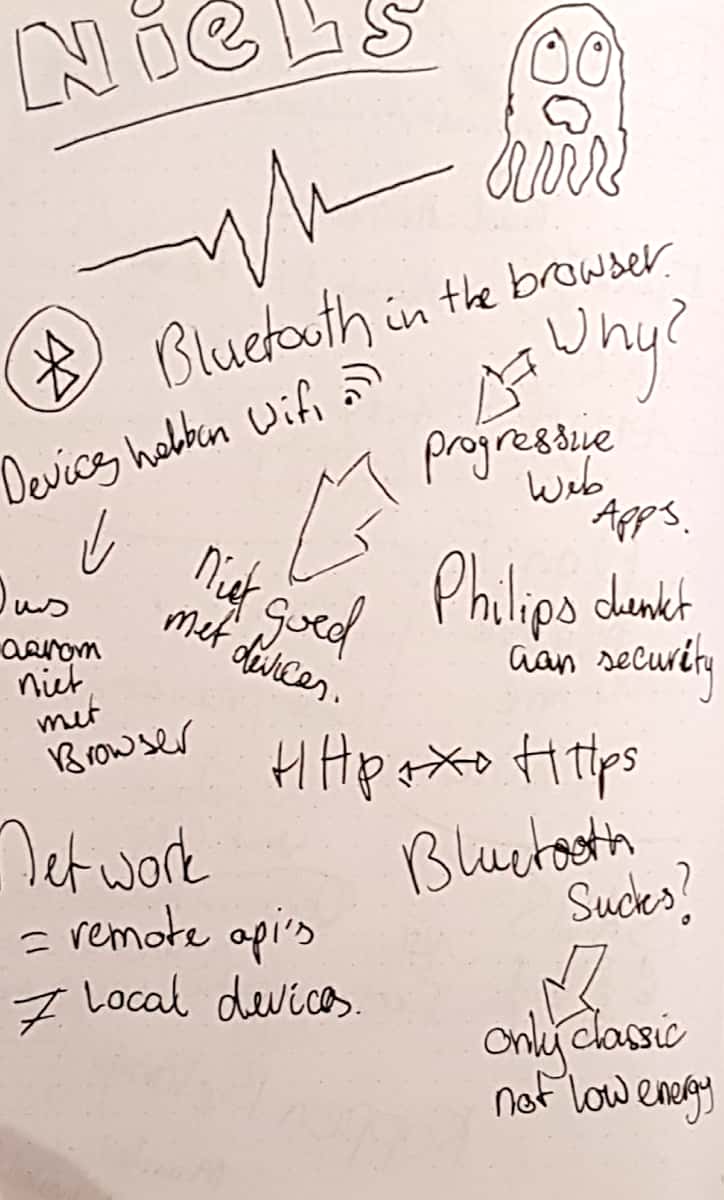 NieLs
Bluetooth in the browser.
Why?
Devices hebben Wifi
progressive
Web
Apps.
niet goed
met devices.
Philips denkt
aan security
niet
met
Browser
HTTp HTTps
Network
= remote api's
≠ Local devices.
Bluetooth
Sucks?
only classic
not low energy